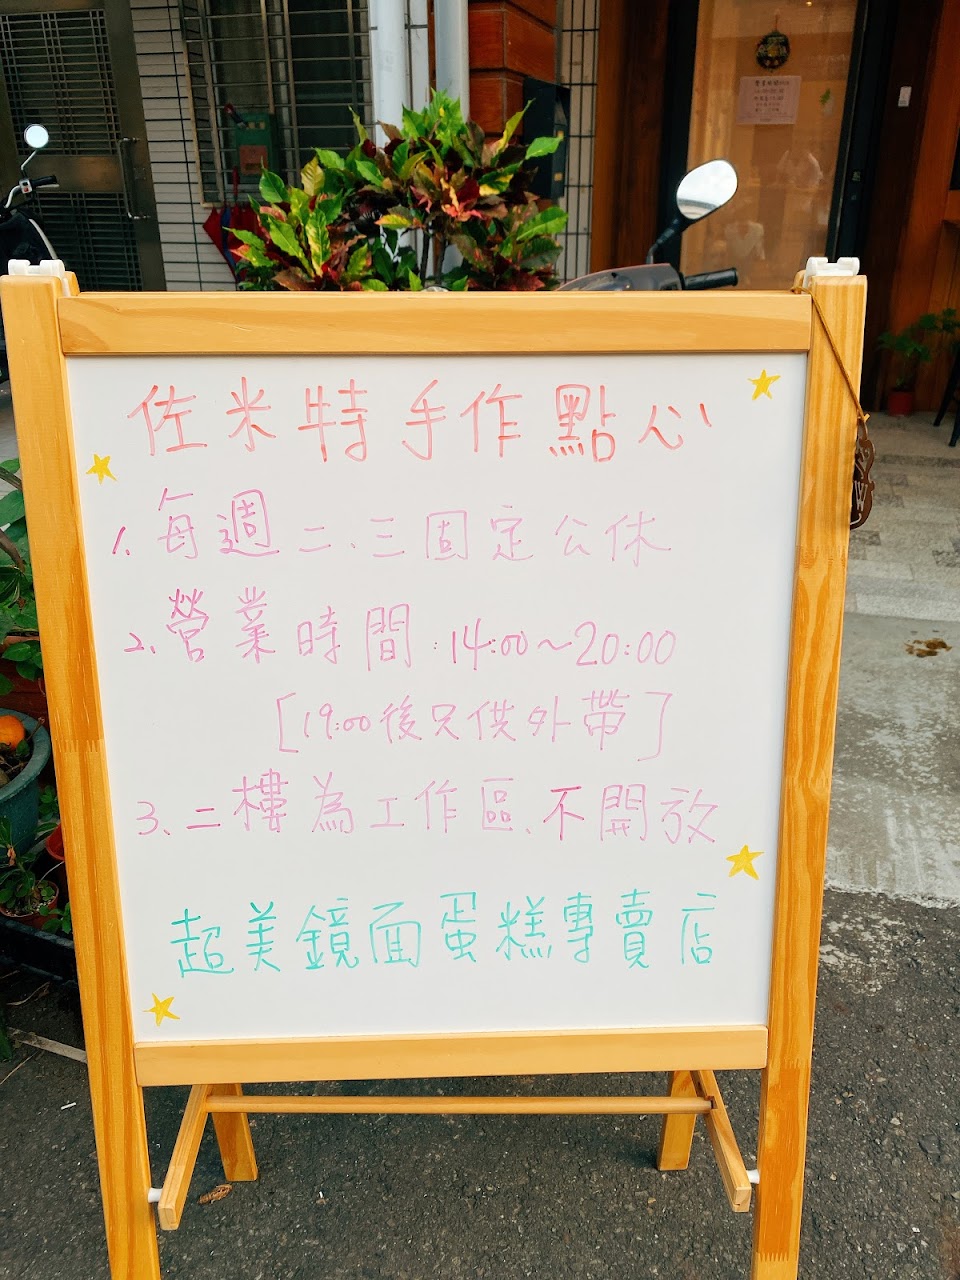 佐米特手作點心
1. 每週二、三固定公休
2、營業時間:14:00～20:00
[19:00後只供外帶]
3、二樓為工作區、不開放
超美鏡面蛋糕專賣店